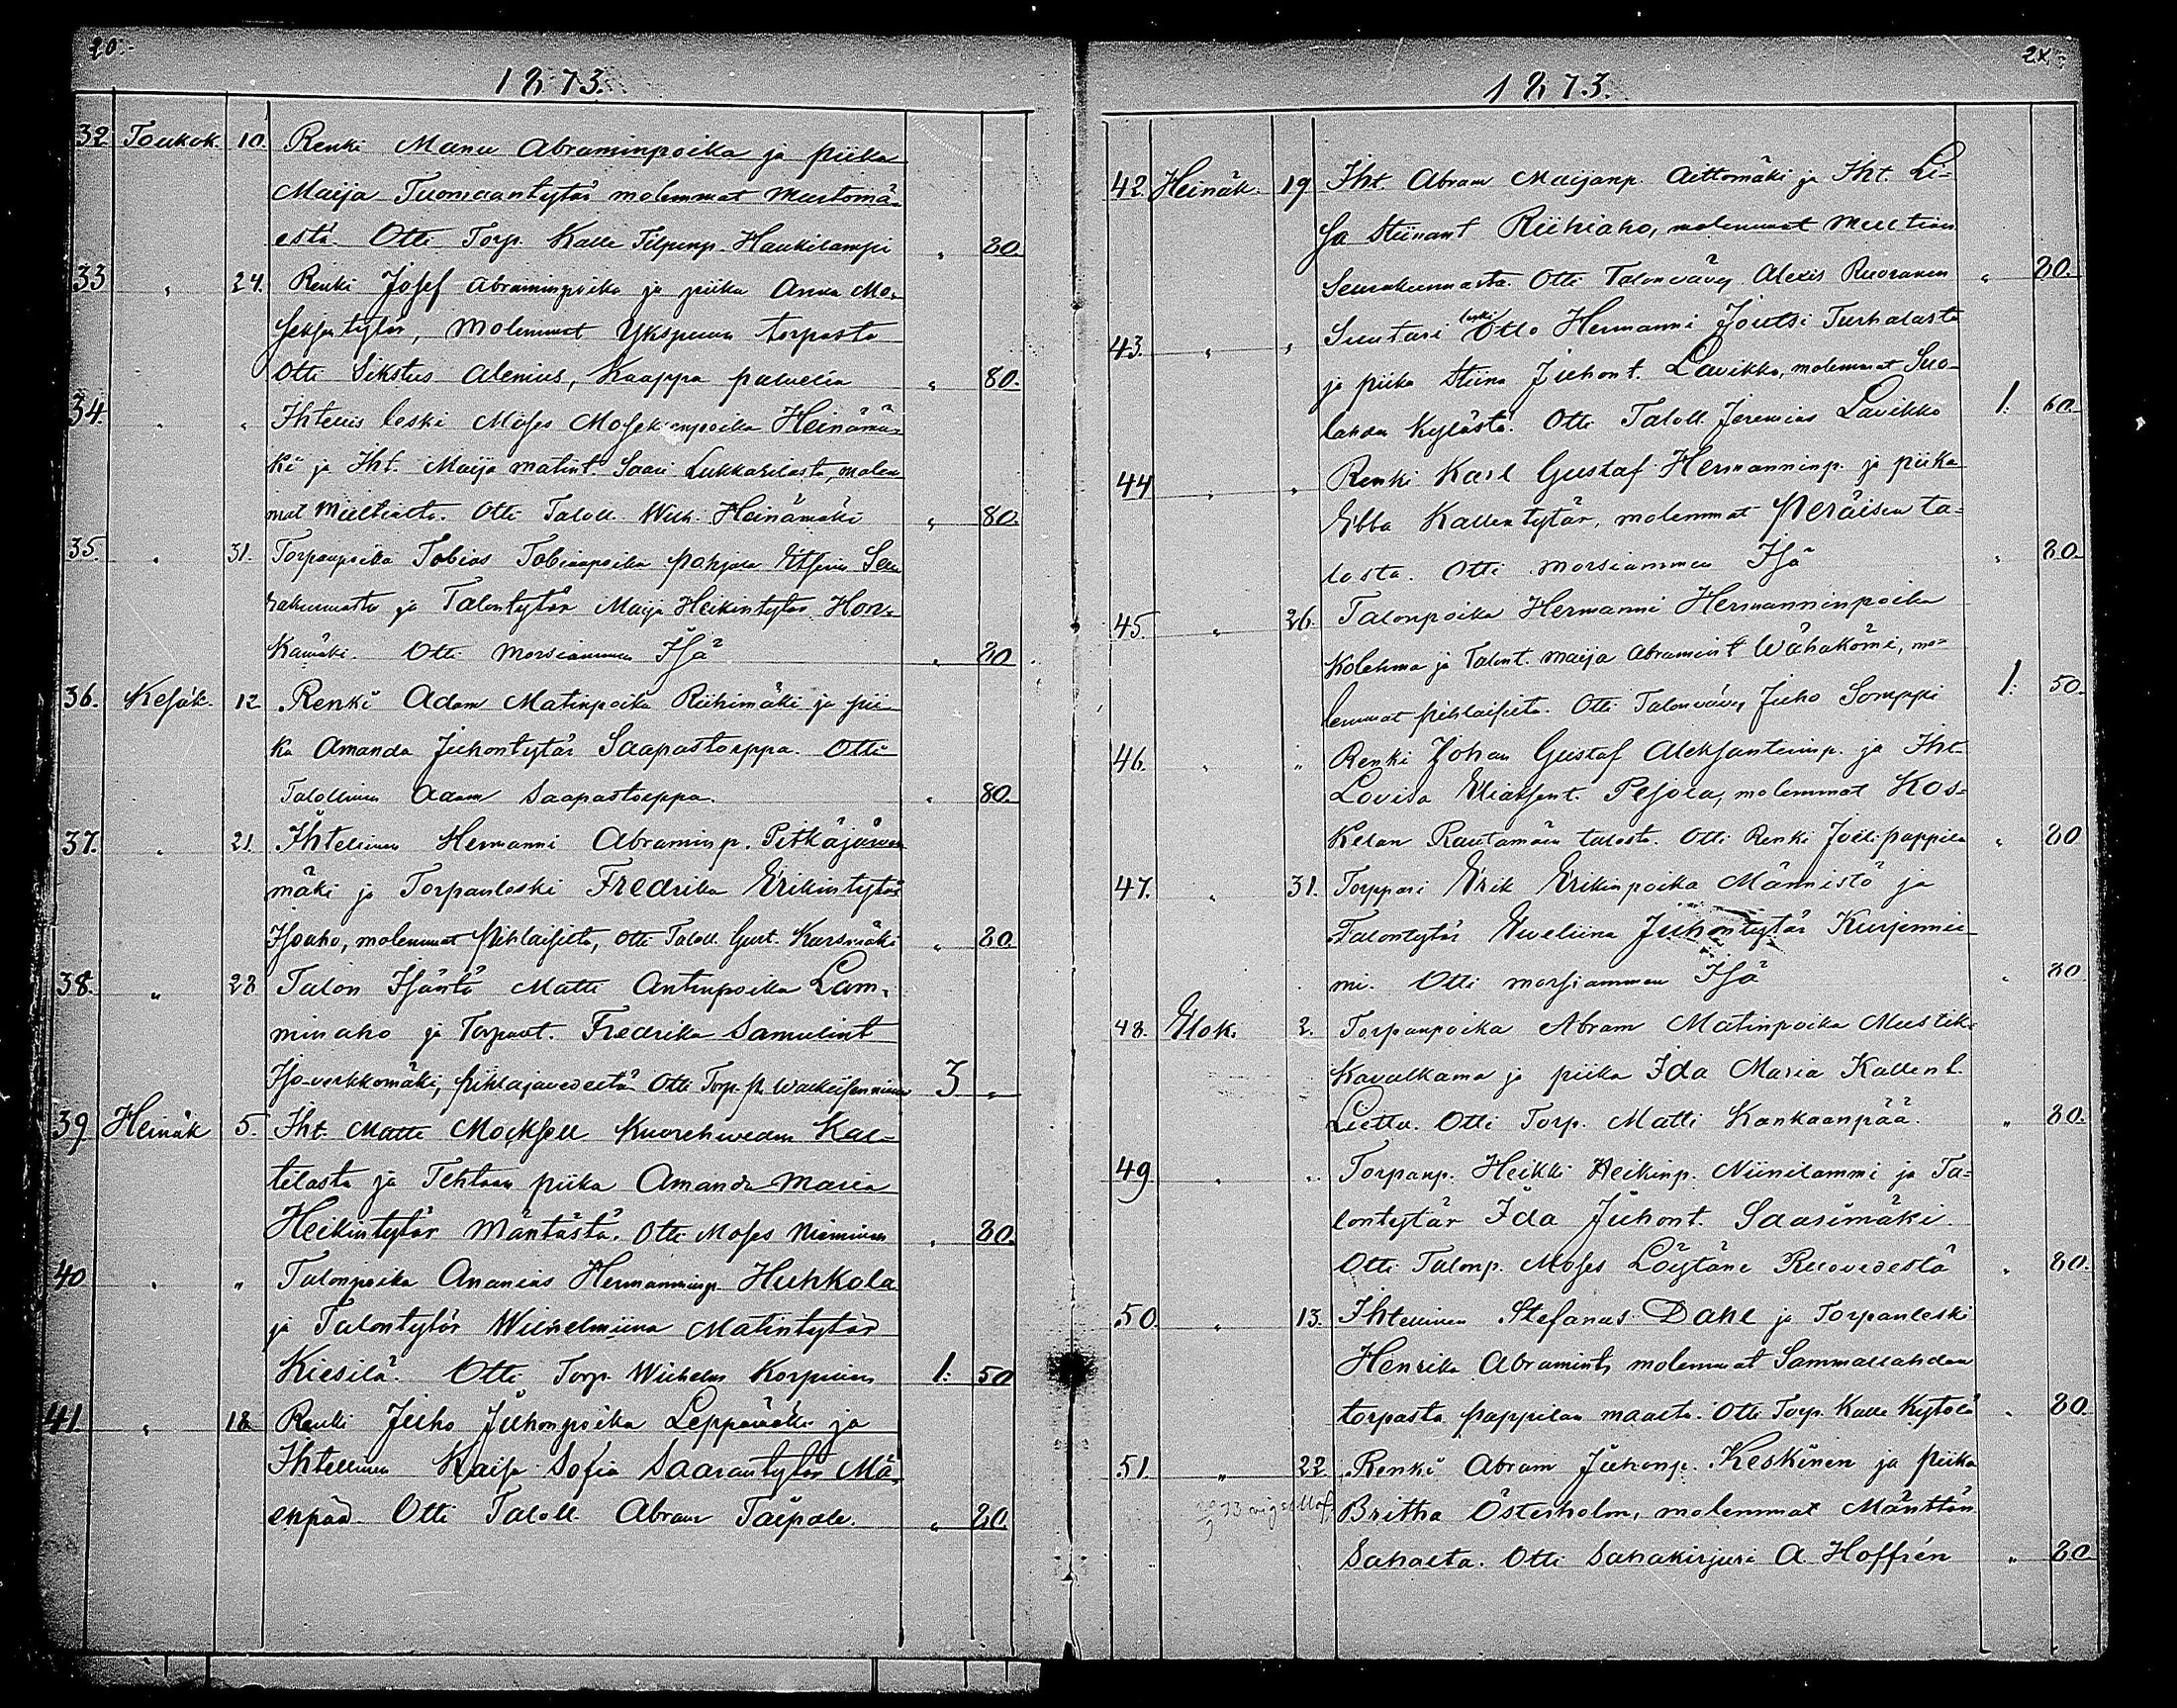 20.
1873.
32 Toukok. 10. Renki Manu Abraminpoika ja piika
Maija Tuomaantytär molemmat Mustomä-
estä. Otti Torp. Kalle Filpinp. Haukilampi „ 80.
33 „ 24. Renki Josef Abraminpoika ja piika Anna Mo-
seksentytär, molemmat Ykspuun torpasta
Otti Sikstus Alenius, Kaappa palvelia „ 80.
34. „ „ Ihtellis leski Moses Moseksenpoika Heinämä-
ki ja Iht. Maija Matint. Saari Lukkarilasta, molem
mat Multialta. Otti Taloll. Wilh. Heinämäki „ 80.
35. „ 31. Torpanpoika Tobias Tobiaapoika Pohjala Etserin Seu
rakunnasta ja Talontytär Maija Heikintytär Hon-
kamäki. Otti Morsiammen Isä „ 80
36. Kesäk. 12 Renki Adam Matinpoika Riihimäki ja pii-
ka Amanda Juhontytär Saapastorppa. Otti
Talollinen Adam Saapastorppa. „ 80.
37. „ 21. Ihtellinen Hermanni Abraminp. Pitkäjärven
mäki ja Torpanleski Fredrika Erikintytär
Isoaho, molemmat Pihlaisilta, Otti Taloll. Gust. Karsmäki „ 80.
38. „ 28 Talon Isäntä Matti Antinpoika Lam-
minaho ja Torpant. Fredrika Samulint
Iso-verkkomäki, Pihlajavedeltä Otti Torp. P. Walkeisenniemi 3 „
39 Heinäk 5. Iht. Matti Mocksell Kuorehweden Kal-
tilasta ja Tehtaan piika Amanda Maria
Heikintytär Mäntästä. Otti Moses Nieminen „ 80.
40 „ „ Talonpoika Ananias Hermanninp. Huhkola
ja Talontytär Wilhelmiina Matintytär
Kiesilä. Otti Torp. Wilhelm Korpinen 1: 50
41. „ 18. Renki Juho Juhonpoika Leppämäki ja
Ihtellinen Kaisa Sofia Saarantytär Mä-
enpää. Otti Taloll. Abram Taipale. „ 80.
21.
1873.
42. Heinäk. 19 Iht. Abram Maijanp. Aittomäki ja Iht. Li-
sa Stiinant Riihiaho, molemmat Multian
Seurakunnasta. Otti Talonvävy Alexis Ruoranen „ 80.
43. „ „ Suutari leski Otto Hermanni Joutsi Turhalasta
ja piika Stiina Juhont. Lavikko, molemmat Suo-
lahden kylästä. Otti Taloll. Jeremias Lavikko 1: 60.
44 „ „ Renki Karl Gustaf Hermanninp. ja piika
Ebba Kallentytär, molemmat Peräisen ta-
losta. Otti morsiammen Isä „ 80.
45. „ 26. Talonpoika Hermanni Hermanninpoika
Kolehma ja Talont. Maija Abramint Wähäkömi, mo-
lemmat Pihlaisilta. Otti Talonvävy Juho Somppi 1: 50.
46. „ „ Renki Johan Gustaf Aleksanterinp. ja Iht.
Lovisa Eliaksent. Pesola, molemmat Kos-
kelan Rautamäen talosta. Otti Renki Joeli Pappila „ 80
47. „ 31. Torppari Erik Erikinpoika Männistö ja
Talontytär Eweliina Juhontytär Kurjennie-
mi. Otti morsiammen Isä „ 80
48. Elok. 2. Torpanpoika Abram Matinpoika Mustik-
kavalkama ja piika Ida Maria Kallent.
Lietta. Otti Torp. Matti Kankaanpää. „ 80.
49 „ „ Torpanp. Heikki Heikinp. Niinilammi ja Ta-
lontytär Ida Juhont. Saarimäki.
Otti Talonp. Moses Löytäne Ruovedestä „ 80.
50. „ 13. Ihtellinen Stefanus Dahl ja Torpanleski
Henrika Abramint, molemmat Sammallahden
torpasta Pappilan maalta. Otti Torp. Kalle Kytölä „ 80.
51. „ 22. Renki Abram Juhonp. Keskinen ja piika
Britha Österholm, molemmat Mänttän
Sahalta. Otti Sahakirjuri A. Hoffrén „ 80